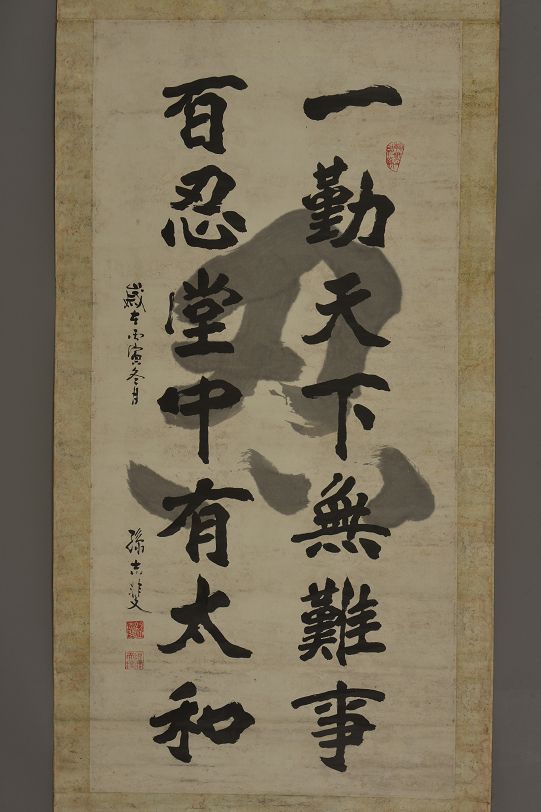 一勤天下無難事
百忍堂中有太和
歲在丙寅冬月
孫
忍